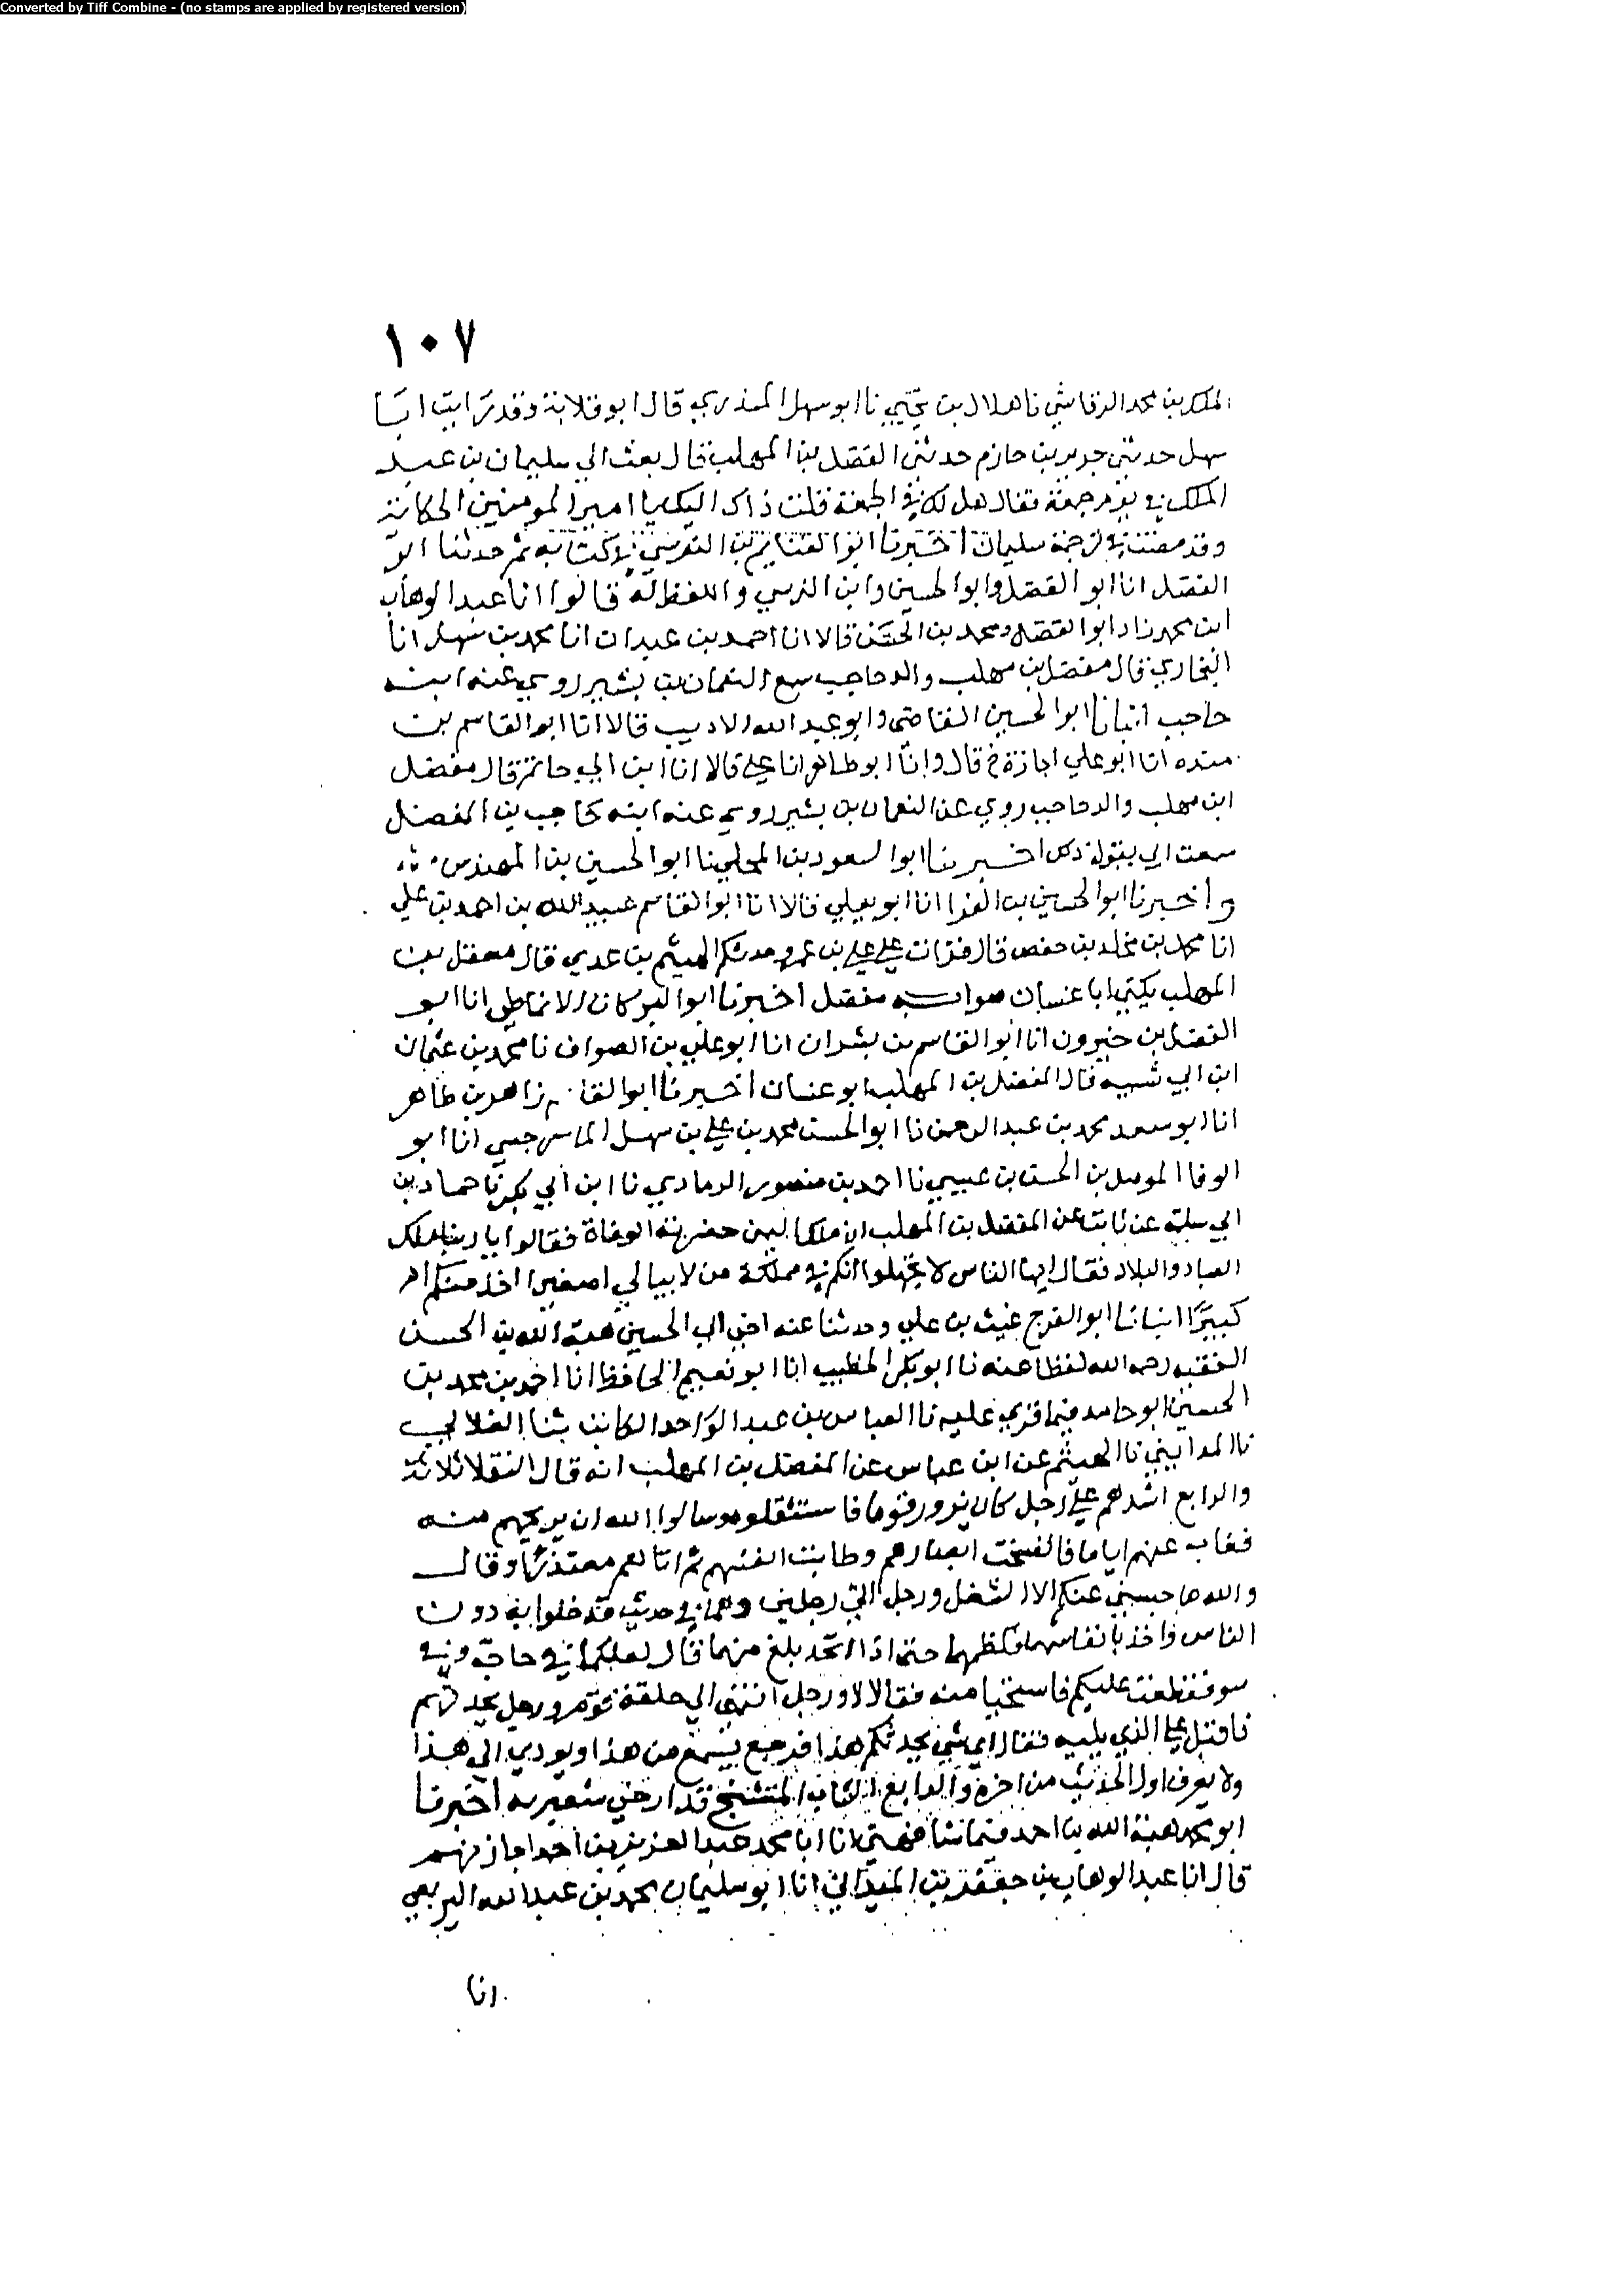 Converted by Tiff Combine - (no stamps are applied by registered version)
١٠٧
الملك بن محمد الرقاشي نا هلال بن يحيى نا ابو سهل المنذري قال ابو قلابة وقد رايت ابا
سهل حدثني جرير بن حازم حدثني الفضل بن المهلب قال بعث الي سليمان بن عبد
الملك في يوم جمعة فقال هل لك في الجمعة قلت ذاك اليك يا امير المومنين الحكاية
وقد مضت في ترجمة سليمان اخبرنا ابو الغنايم بن النرسي في كتابه ثم حدثنا ابو
الفضل انا ابو الفضل وابو الحسين وابن النرسي واللفظ له قالوا انا عبد الوهاب
ابن محمد زاد ابو الفضل ومحمد بن الحسن قالا انا احمد بن عبدان انا محمد بن سهل انا
البخاري قال مفضل بن مهلب والد حاجب سمع النعمان بن بشير روى عنه ابنه
حاجب انبانا ابو الحسين القاضي وابو عبد الله الاديب قالا انا ابو القاسم بن
منده انا ابو علي اجازة ح قال وانا ابو طاهر انا علي قالا انا ابن ابي حاتم قال مفضل
ابن مهلب والد حاجب روى عن النعمان بن بشير روى عنه ابنه حاجب بن المفضل
سمعت ابي يقول ذلك اخبرنا ابو السعود بن المجلي نا ابو الحسين بن المهتدي
واخبرنا ابو الحسين بن الفرا انا ابو يعلي قالا انا ابو القاسم عبيد الله بن احمد بن علي
انا محمد بن مخلد بن حفص قال قرات علي علي بن عمرو حدثكم الهيثم بن عدي قال معقل بن
المهلب يكنى ابا غسان صوابه مفضل اخبرنا ابو البركات الانماطي انا ابو
الفضل بن خيرون انا ابو القاسم بن بشران انا ابو علي بن الصواف نا محمد بن عثمان
ابن ابي شيبه قال المفضل بن المهلب ابو غسان اخبرنا ابو القاسم زاهر بن طاهر
انا ابو سعد محمد بن عبد الرحمن نا ابو الحسن محمد بن علي بن سهل الماسرجسي انا ابو
الوفا المومل بن الحسن بن عيسي نا احمد بن منصور الرمادي نا ابن ابي بكير نا حماد بن
ابي سلمة عن ثابت عن المفضل بن المهلب ان ملكا لبمن حضرته الوفاة فقالوا يا ربنا ملك
العباد والبلاد فقال ايها الناس لا تجهلوا انكم في مملكة من لا يبالي اصغيرا اخذ منكم ام
كبيرا انبانا ابو الفرج غيث بن علي وحدثنا عنه اخي ابي الحسين هبة الله بن الحسن
الفقيه رحمه الله لفظا عنه نا ابو بكر الخطيب انا ابو نعيم الحافظ انا احمد بن محمد بن
الحسين ابو حامد فيما قري عليه نا العباس بن عبد الواحد الكاتب ثنا الغلابي
نا المدايني نا الهيثم عن ابن عباس عن المفضل بن المهلب انه قال الثقلا ثلاثة
والرابع اشدهم علي رجل كان يزور قوما فاستثقلوه وسالوا الله ان يريحهم منه
فغاب عنهم اياما فانفتحت ابصارهم وطابت انفسهم ثم اتاهم معتذرا وقال
والله ما حبسني عنكم الا الشغل ورجل اتي رجلين وهما في حديث قد خلوا به دون
الناس فاخذ بانفاسهما وكظمهما حتى اذا الجد بلغ منهما قال لعلكما في حاجة وفي
سر فقطعت عليكم فاستحيا منه فقالا لا ورجل انتهى الي حلقة قوم ورجل يحدثهم
فاقبل علي الذي يليه فقال اي شي يحدثكم هذا فرجع يسمع من هذا ويودي الى هذا
ولا يعرف اول الحديث من اخره والرابع الشاب المتشيخ قد ارخى شعيره اخبرنا
ابو محمد هبة الله بن احمد فيما شافهني انا ابا محمد عبد العزيز بن احمد اجاز لهم
قال انا عبد الوهاب بن جعفر بن الميداني انا ابو سليمان محمد بن عبد الله الربعي
انا